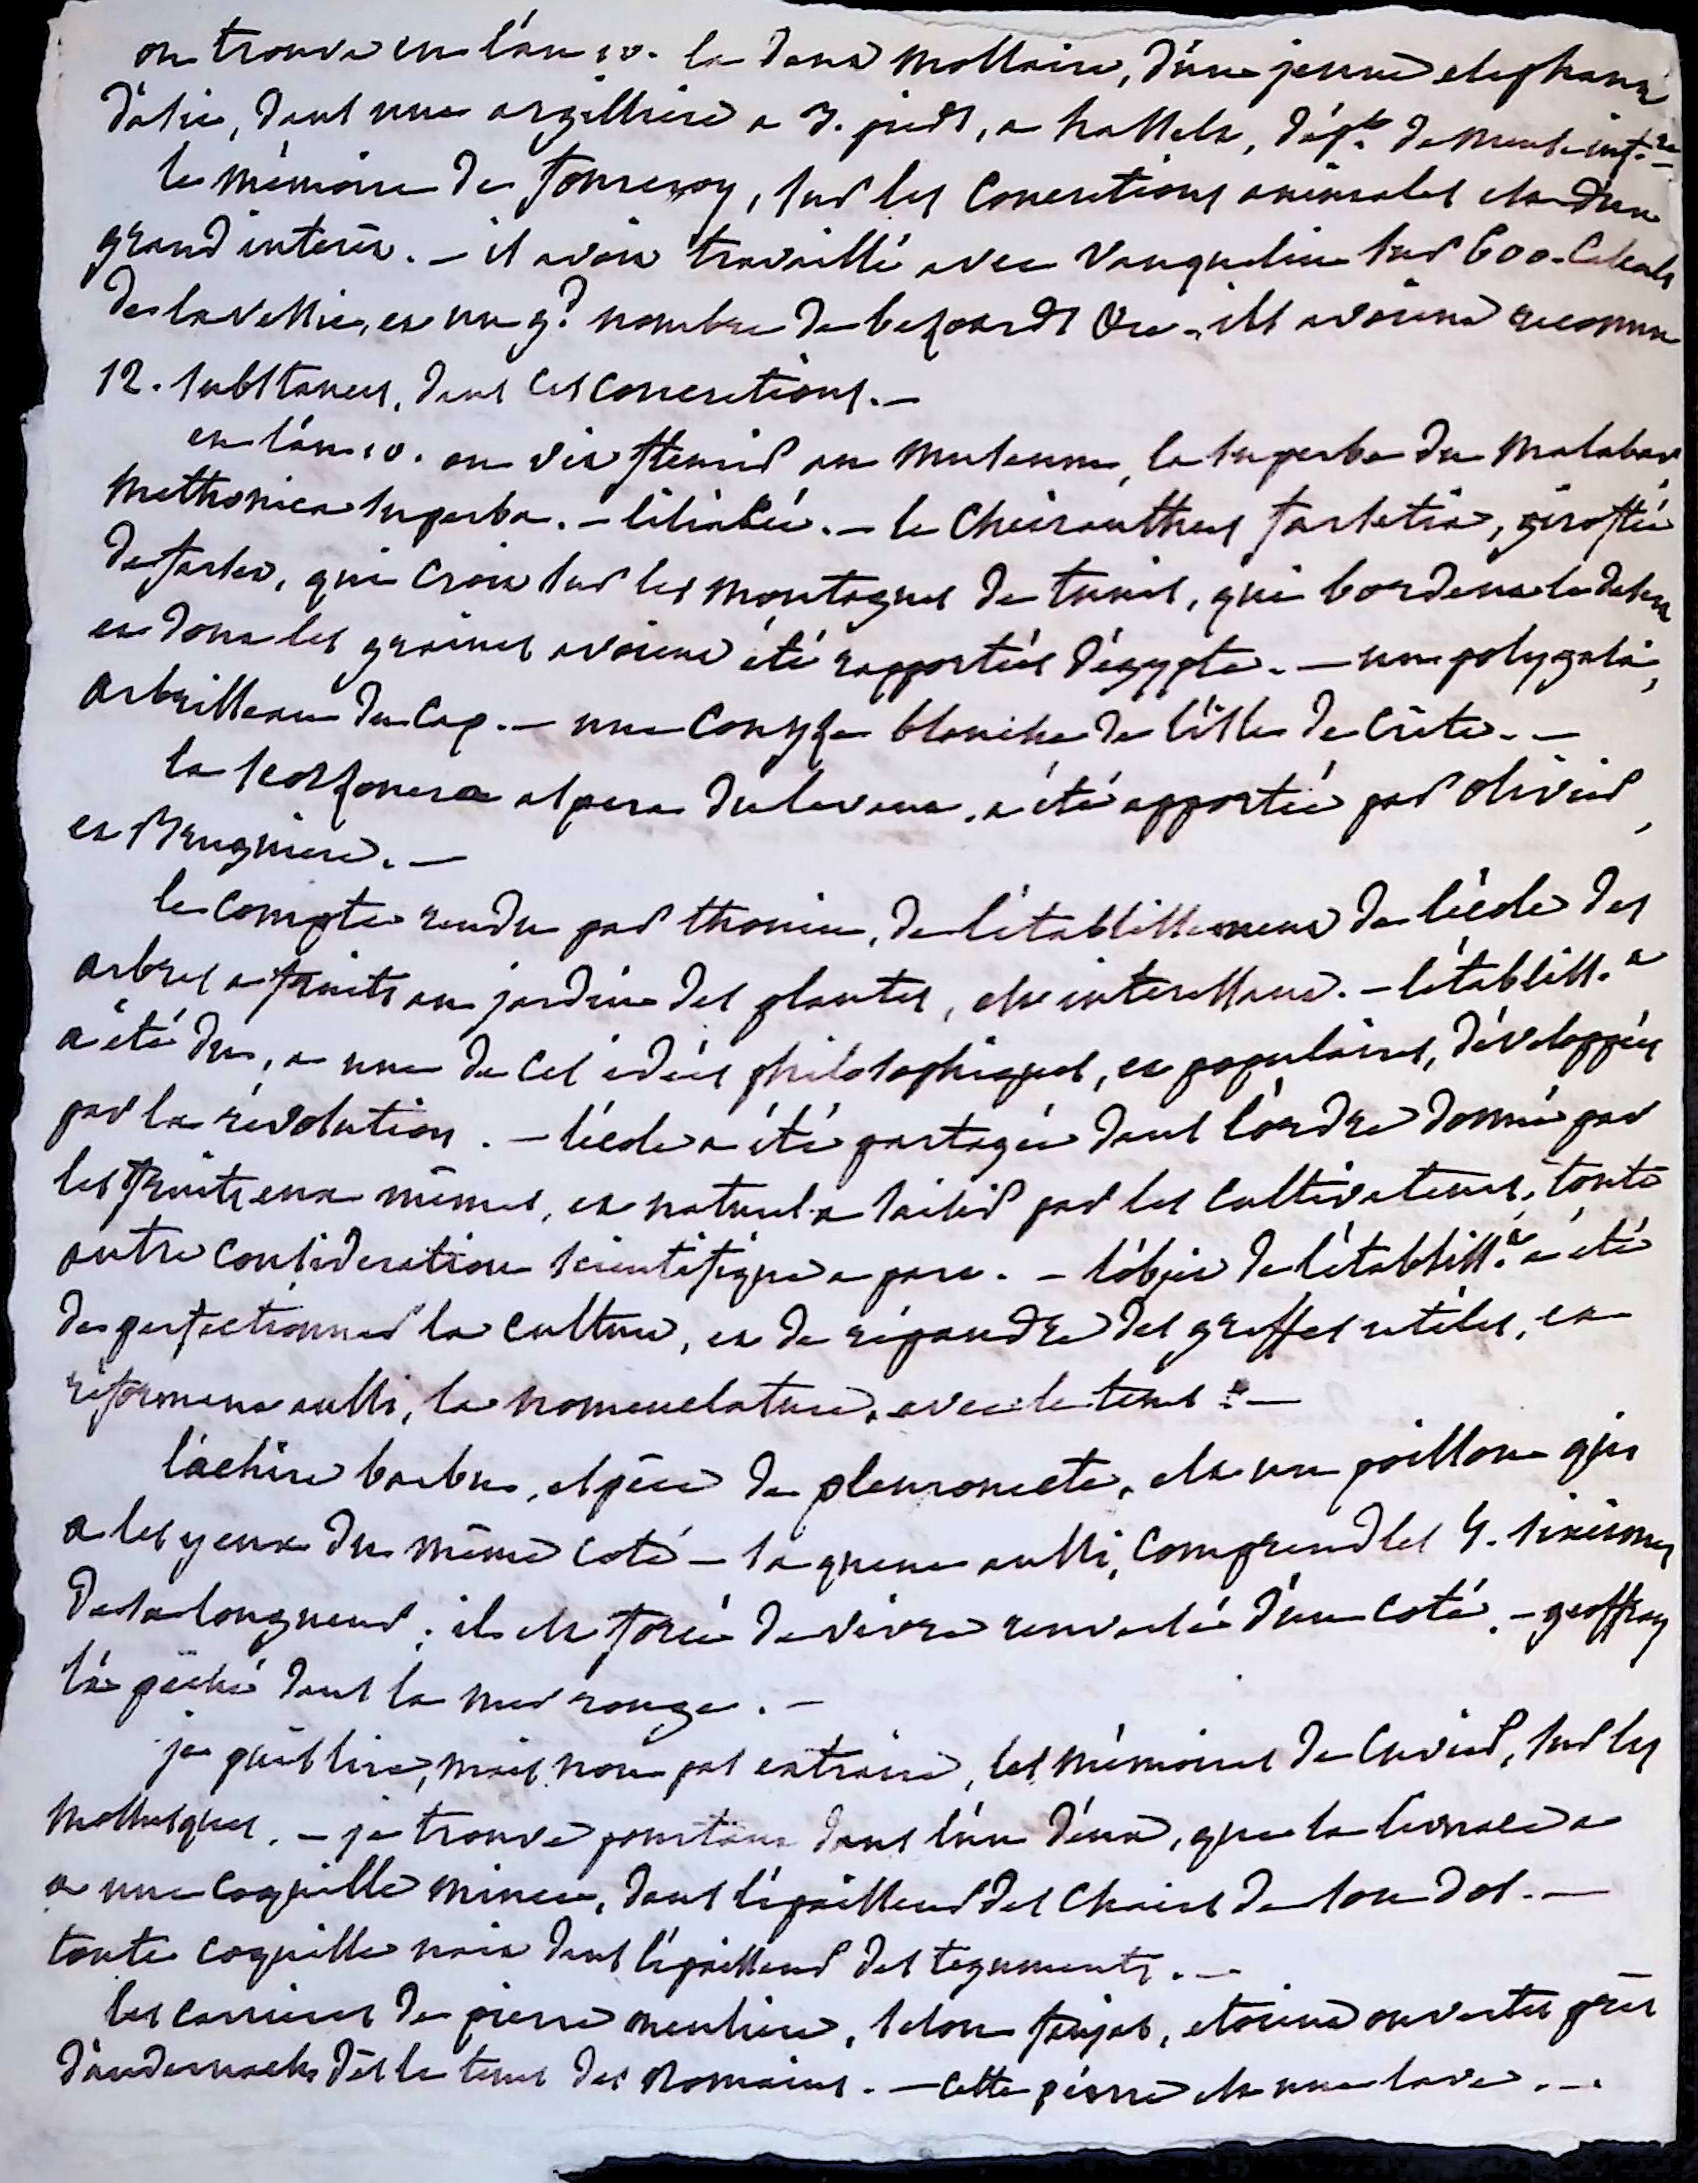 on trouva en l'an 10. la dent mollaire, d'une jeune elephant
d'asie, dans une argilliere a 7. pieds, a hassels, dép.t de meuse inf.re
le mémoire de fourcroy, sur les concretions animales est d'un
grand interêt. - il avoit travaillé avec vauquelin sur 600. calculs
de la vessie, et un g.d nombre de bezoards &c. ils avoient reconnu
12. substances, dans ces concretions. -
en l'an 10. on vit fleurir au museum, la superbe du malabar,
methonica superba. - liliacée. - le cheiranthus farsetia, giroflée
de farset, qui croit sur les montagnes de tunis, qui bordent le desert
et dont les graines avoient été rapportées d'égypte. - un polygala,
arbrisseau du cap. - une conyza blanche de l'isle de crète. -
la scorzonera aspera du levant, a été apportée par olivier,
et Bruguiere. -
le compte rendu par thouin, de l'établissement de l'école des
arbres a fruits au jardin des plantes, est interessant. - l'établiss.t
a été du, a une de ces idées philosophiques, et populaires, développées
par la révolution. - l'école a été partagée dans l'ordre donné par
les fruits eux mêmes, et naturel a saisir par les cultivateurs, toute
autre consideration scientifique a part. - l'objet de l'établiss.t a été
de perfectionner la culture, et de répandre des greffes utiles, en
réformant aussi, la nomenclature, avec le tems. -
l'achire barbu, espèce de pleuronecte, est un poisson qui
a les yeux du même coté - sa queue aussi, comprend les 4. sixiemes
de sa longueur. il est forcé de vivre renversé d'un coté. - geoffroy
l'a pêché dans la mer rouge. -
je puis lire, mais non pas extraire, les mémoires de cuvier, sur les
mollusques. - je trouve pourtant dans l'un d'eux, que la limace
a une coquille mince, dans l'épaisseur des chairs de son dos. -
toute coquille nait dans l'épaisseur des teguments. -
les carrieres de pierre meuliere, selon faujas, etoient ouvertes près
d'andernach dès le tems des Romains. - cette pierre est une lave. -